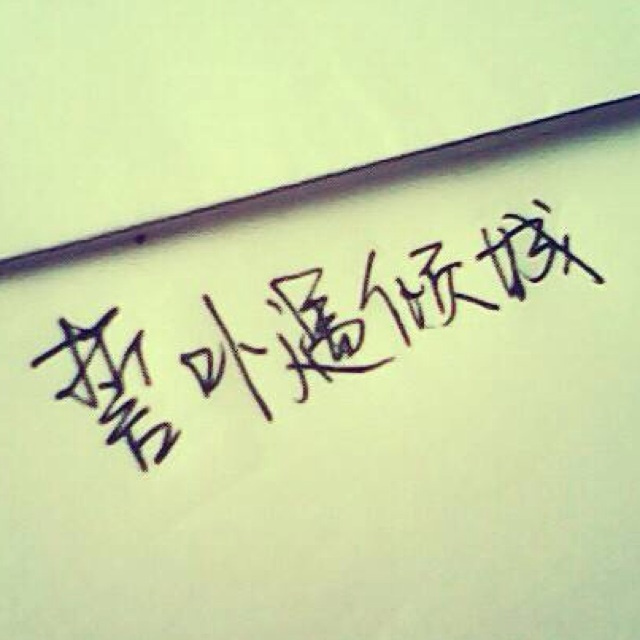 誓卟遍倾城